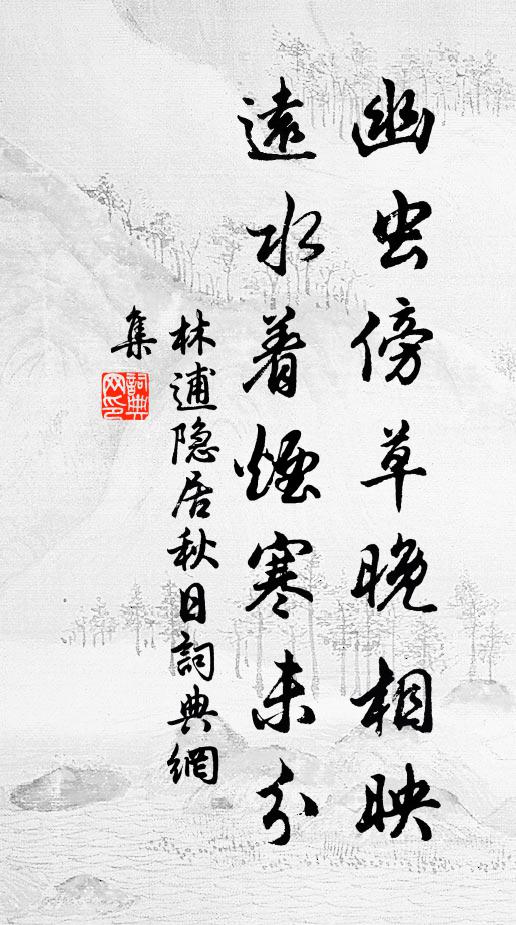 幽虫傍草晚相映
遠水着煙寒未分
林逋隐居秋日詞典網
集
詞典網印